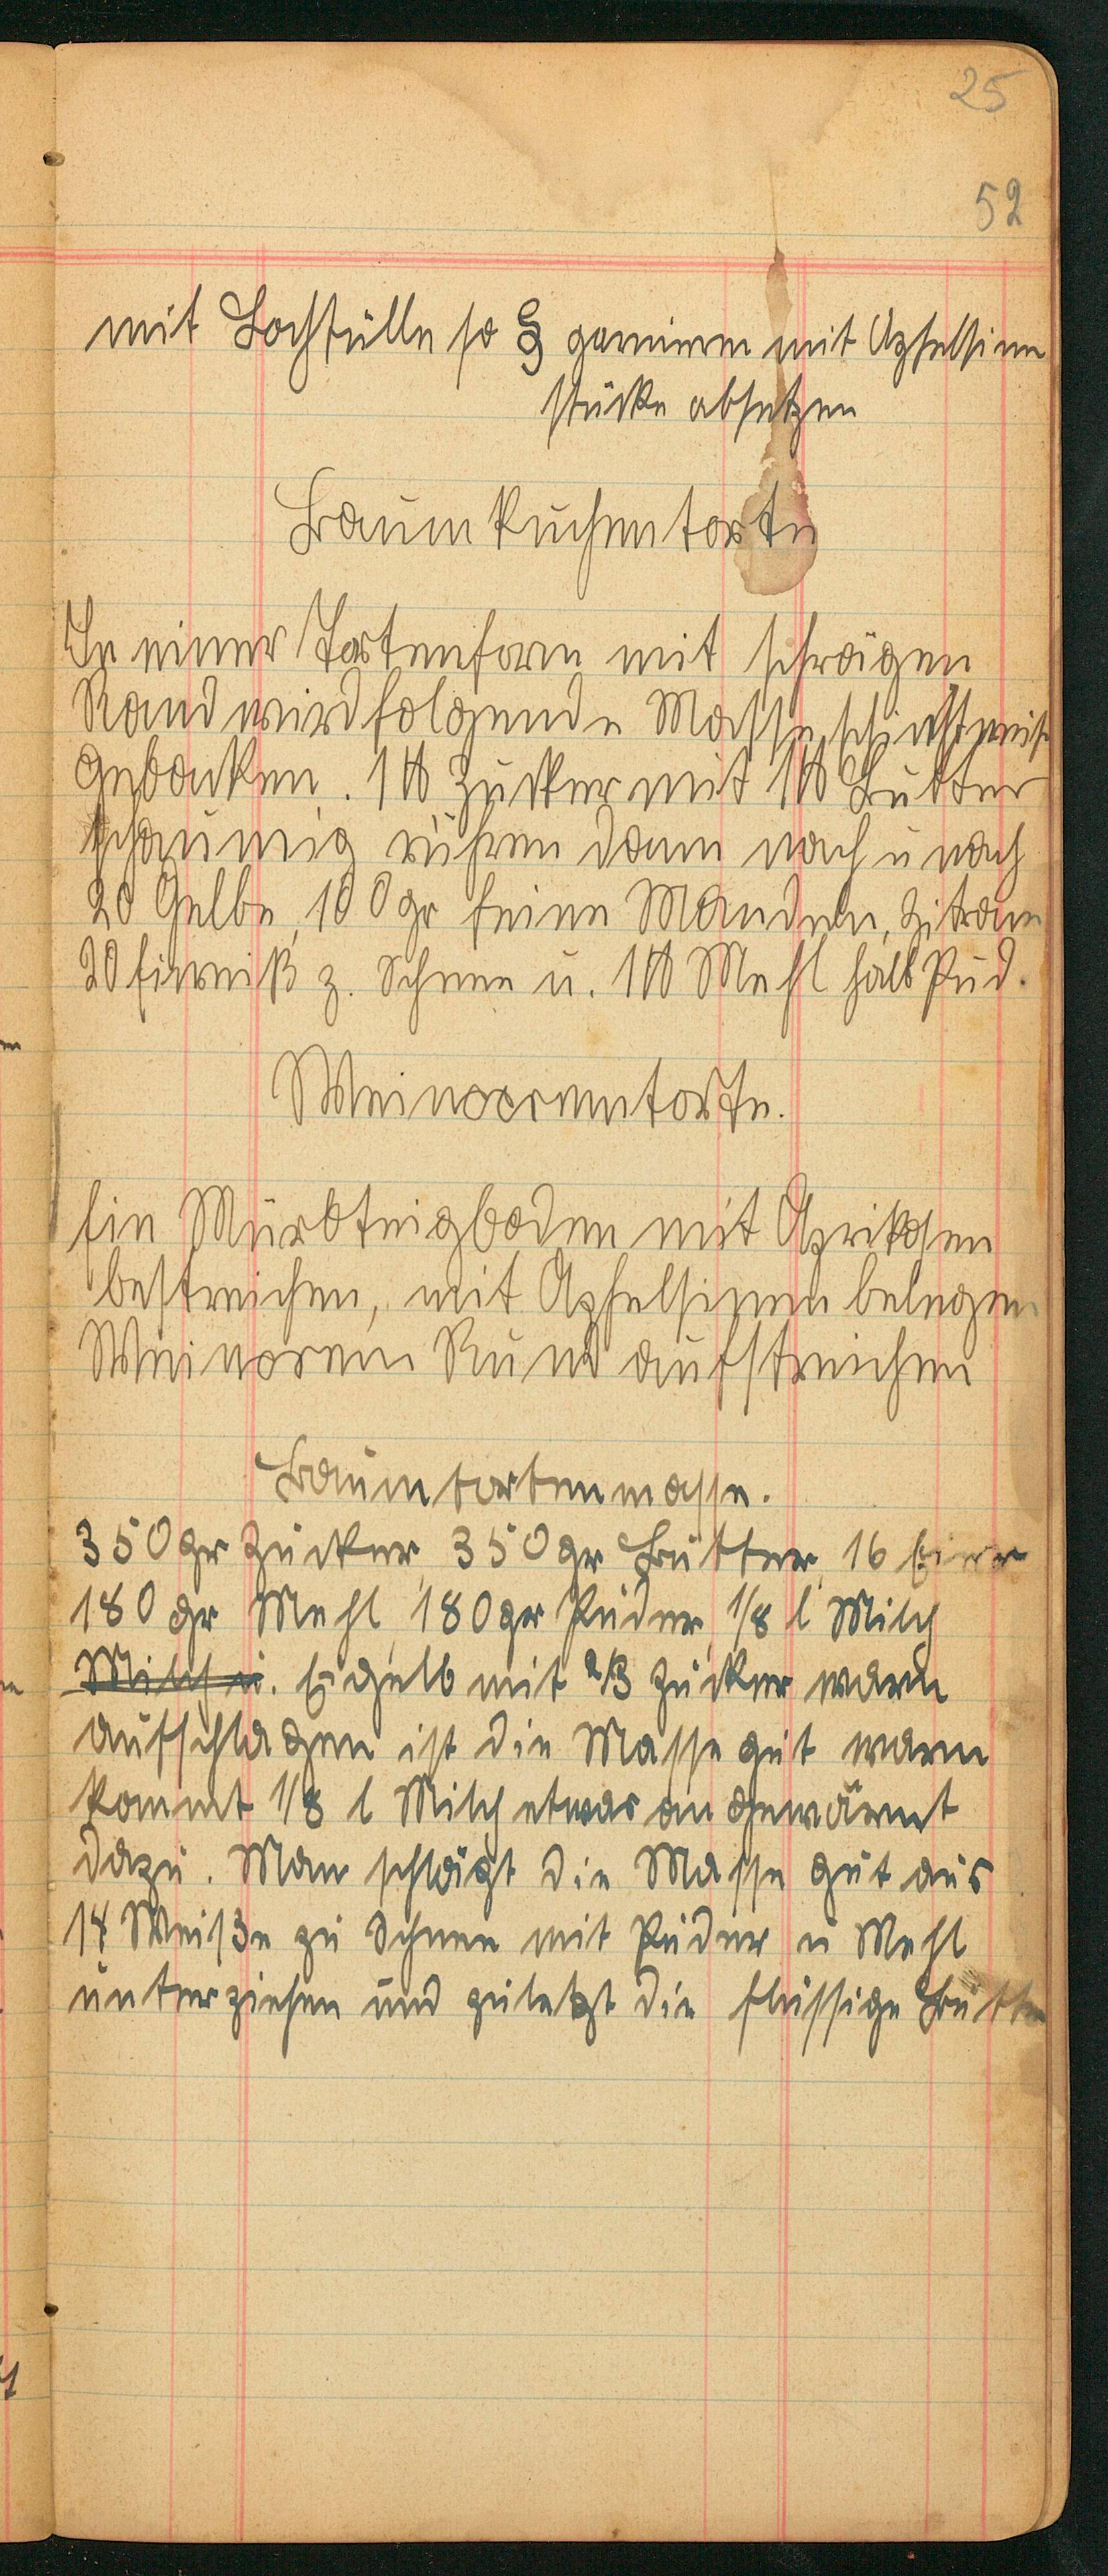 25
52
mit Lochfülle so garnieren mit Apfelsinen
stücke absetzen
Baumkuchentorte
In einer Tortenform mit schrägen
Rand wird folgende Masse schichtweise
gebacken. 1 ℔ Zucker mit 1 ℔ Butter
schaumig rühren dann nach u nach
20 Gelbe, 100 gr feine Mandeln, Zitrone
20 Eiweiß z. Schnee u. 1 ℔ Mehl halb Pud.
Weincremetorte.
Ein Mürbteigboden mit Aprikosen
bestreichen, mit Apfelsinen belegen
Weincrem Rund aufstreichen
Baumtortenmasse.
350 gr Zucker, 350 gr Butter, 16 Eier
180 gr Mehl, 180 gr Puder, 1/8 l Milch
Milch u. Eigelb mit 2/3 Zucker warm
aufschlagen ist die Masse gut warm
kommt 1/8 l Milch etwas angewärmt
dazu. Man schlägt die Masse gut aus
14 Weiße zu Schnee mit Puder u Mehl
unterziehen und zuletzt die flüssige Butter